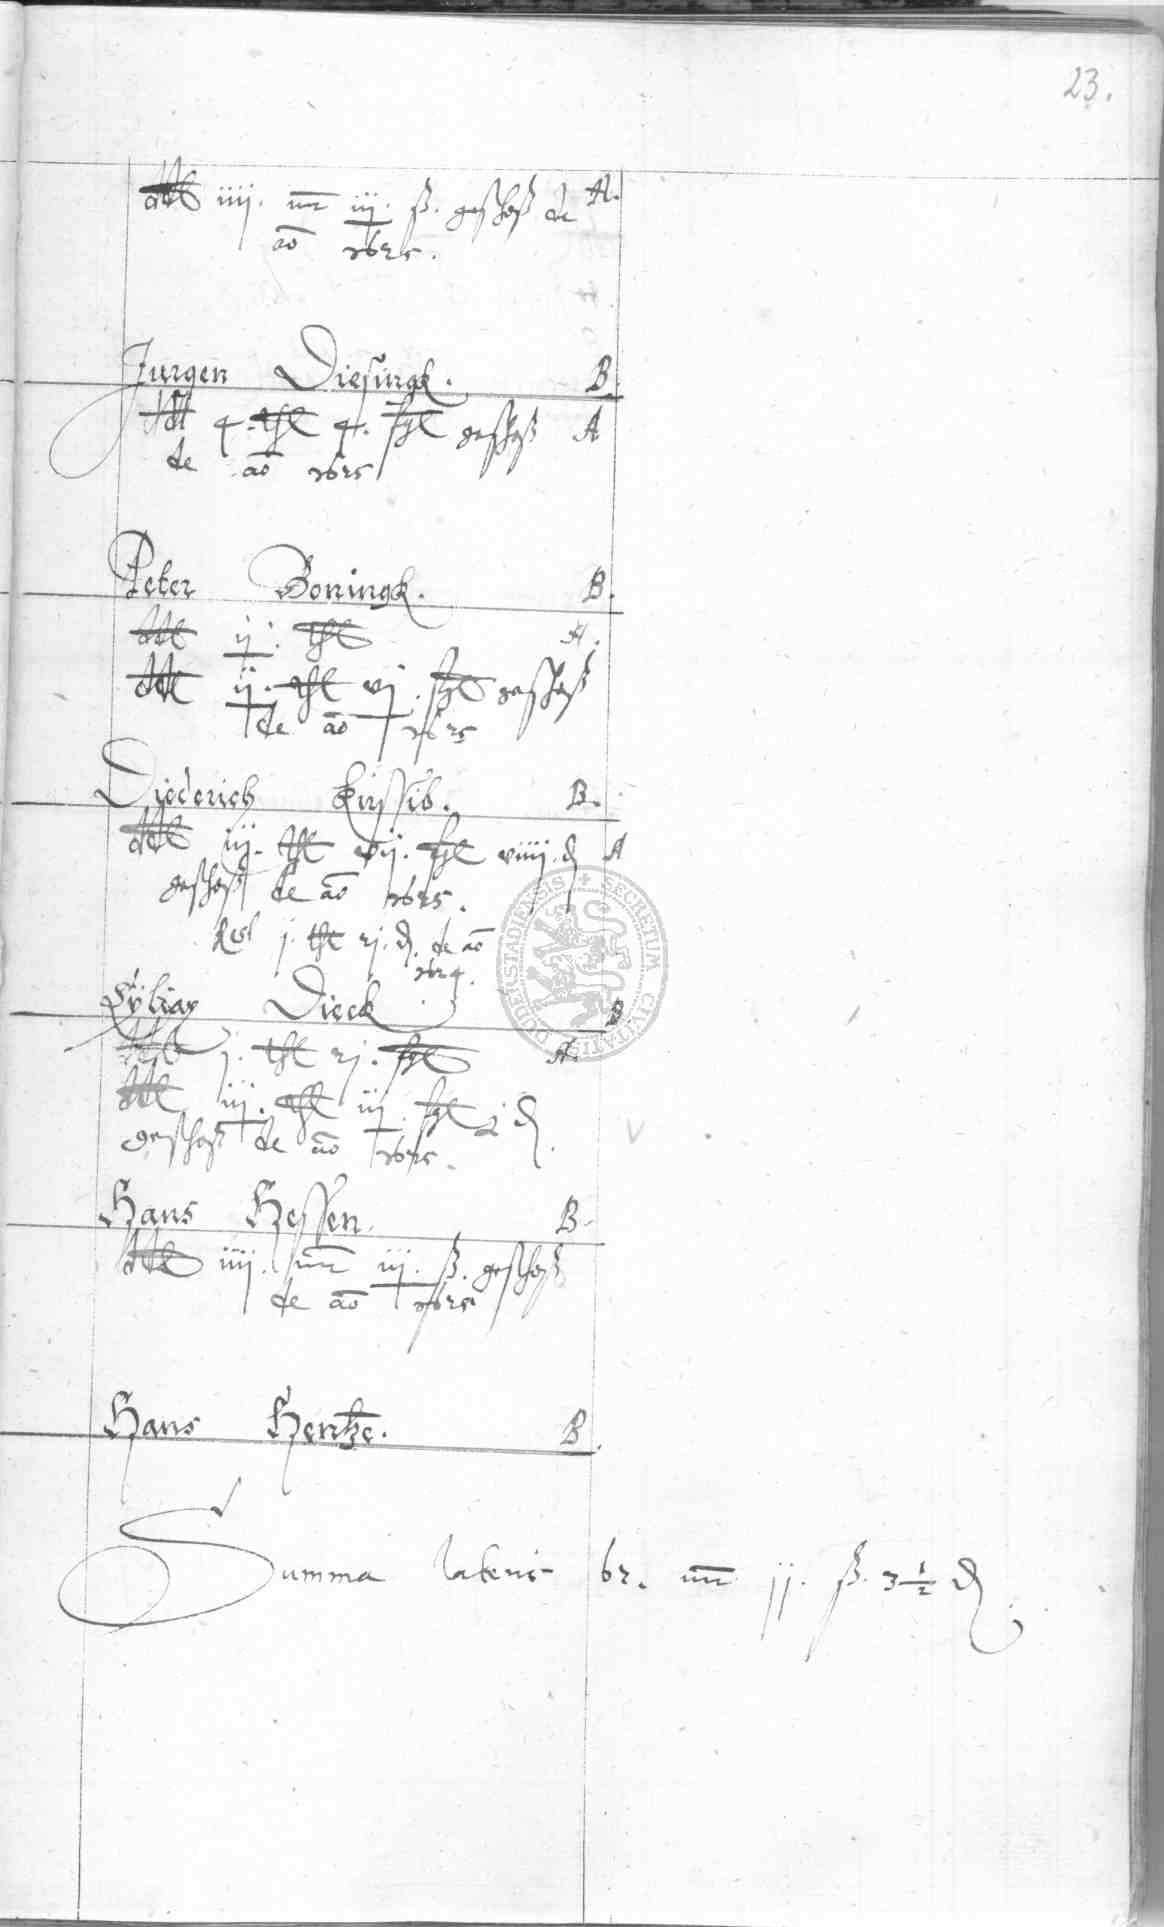 23.
dedit iiij. mr iij. ß. geschoß de A.
ao 1625.
Jurgen Diesingk. B.
dedit 4. thl 4. sgl geschoß A
de ao 1625
Peter Boningk. B.
dedit ij. thl A.
dedit ij. thl vj. sgl geschoß
de ao 1625
Diederich B.
dedit iij. thl vij. sgl viiij. d A
geschoß de ao 1625.
Rest j. thl xj. d. de ao
1624.
Dieck B
dedit j. thl xj. sgl A.
dedit iij. thl iij sgl d.
geschoß de ao 1625.
Hans Hessen. B.
dedit iiij. mr iij. ß. geschoß
de ao 1625
Hans Hentze. B.
Summa lateris 62. mr jj. ß. 3 1/2 d
SECRETUM CIVITATIS DUDERSTADIENSIS